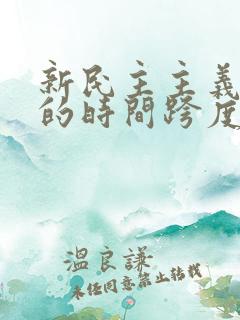 新民主主義
的時間跨度
溫良謙
未任同意禁止轉載